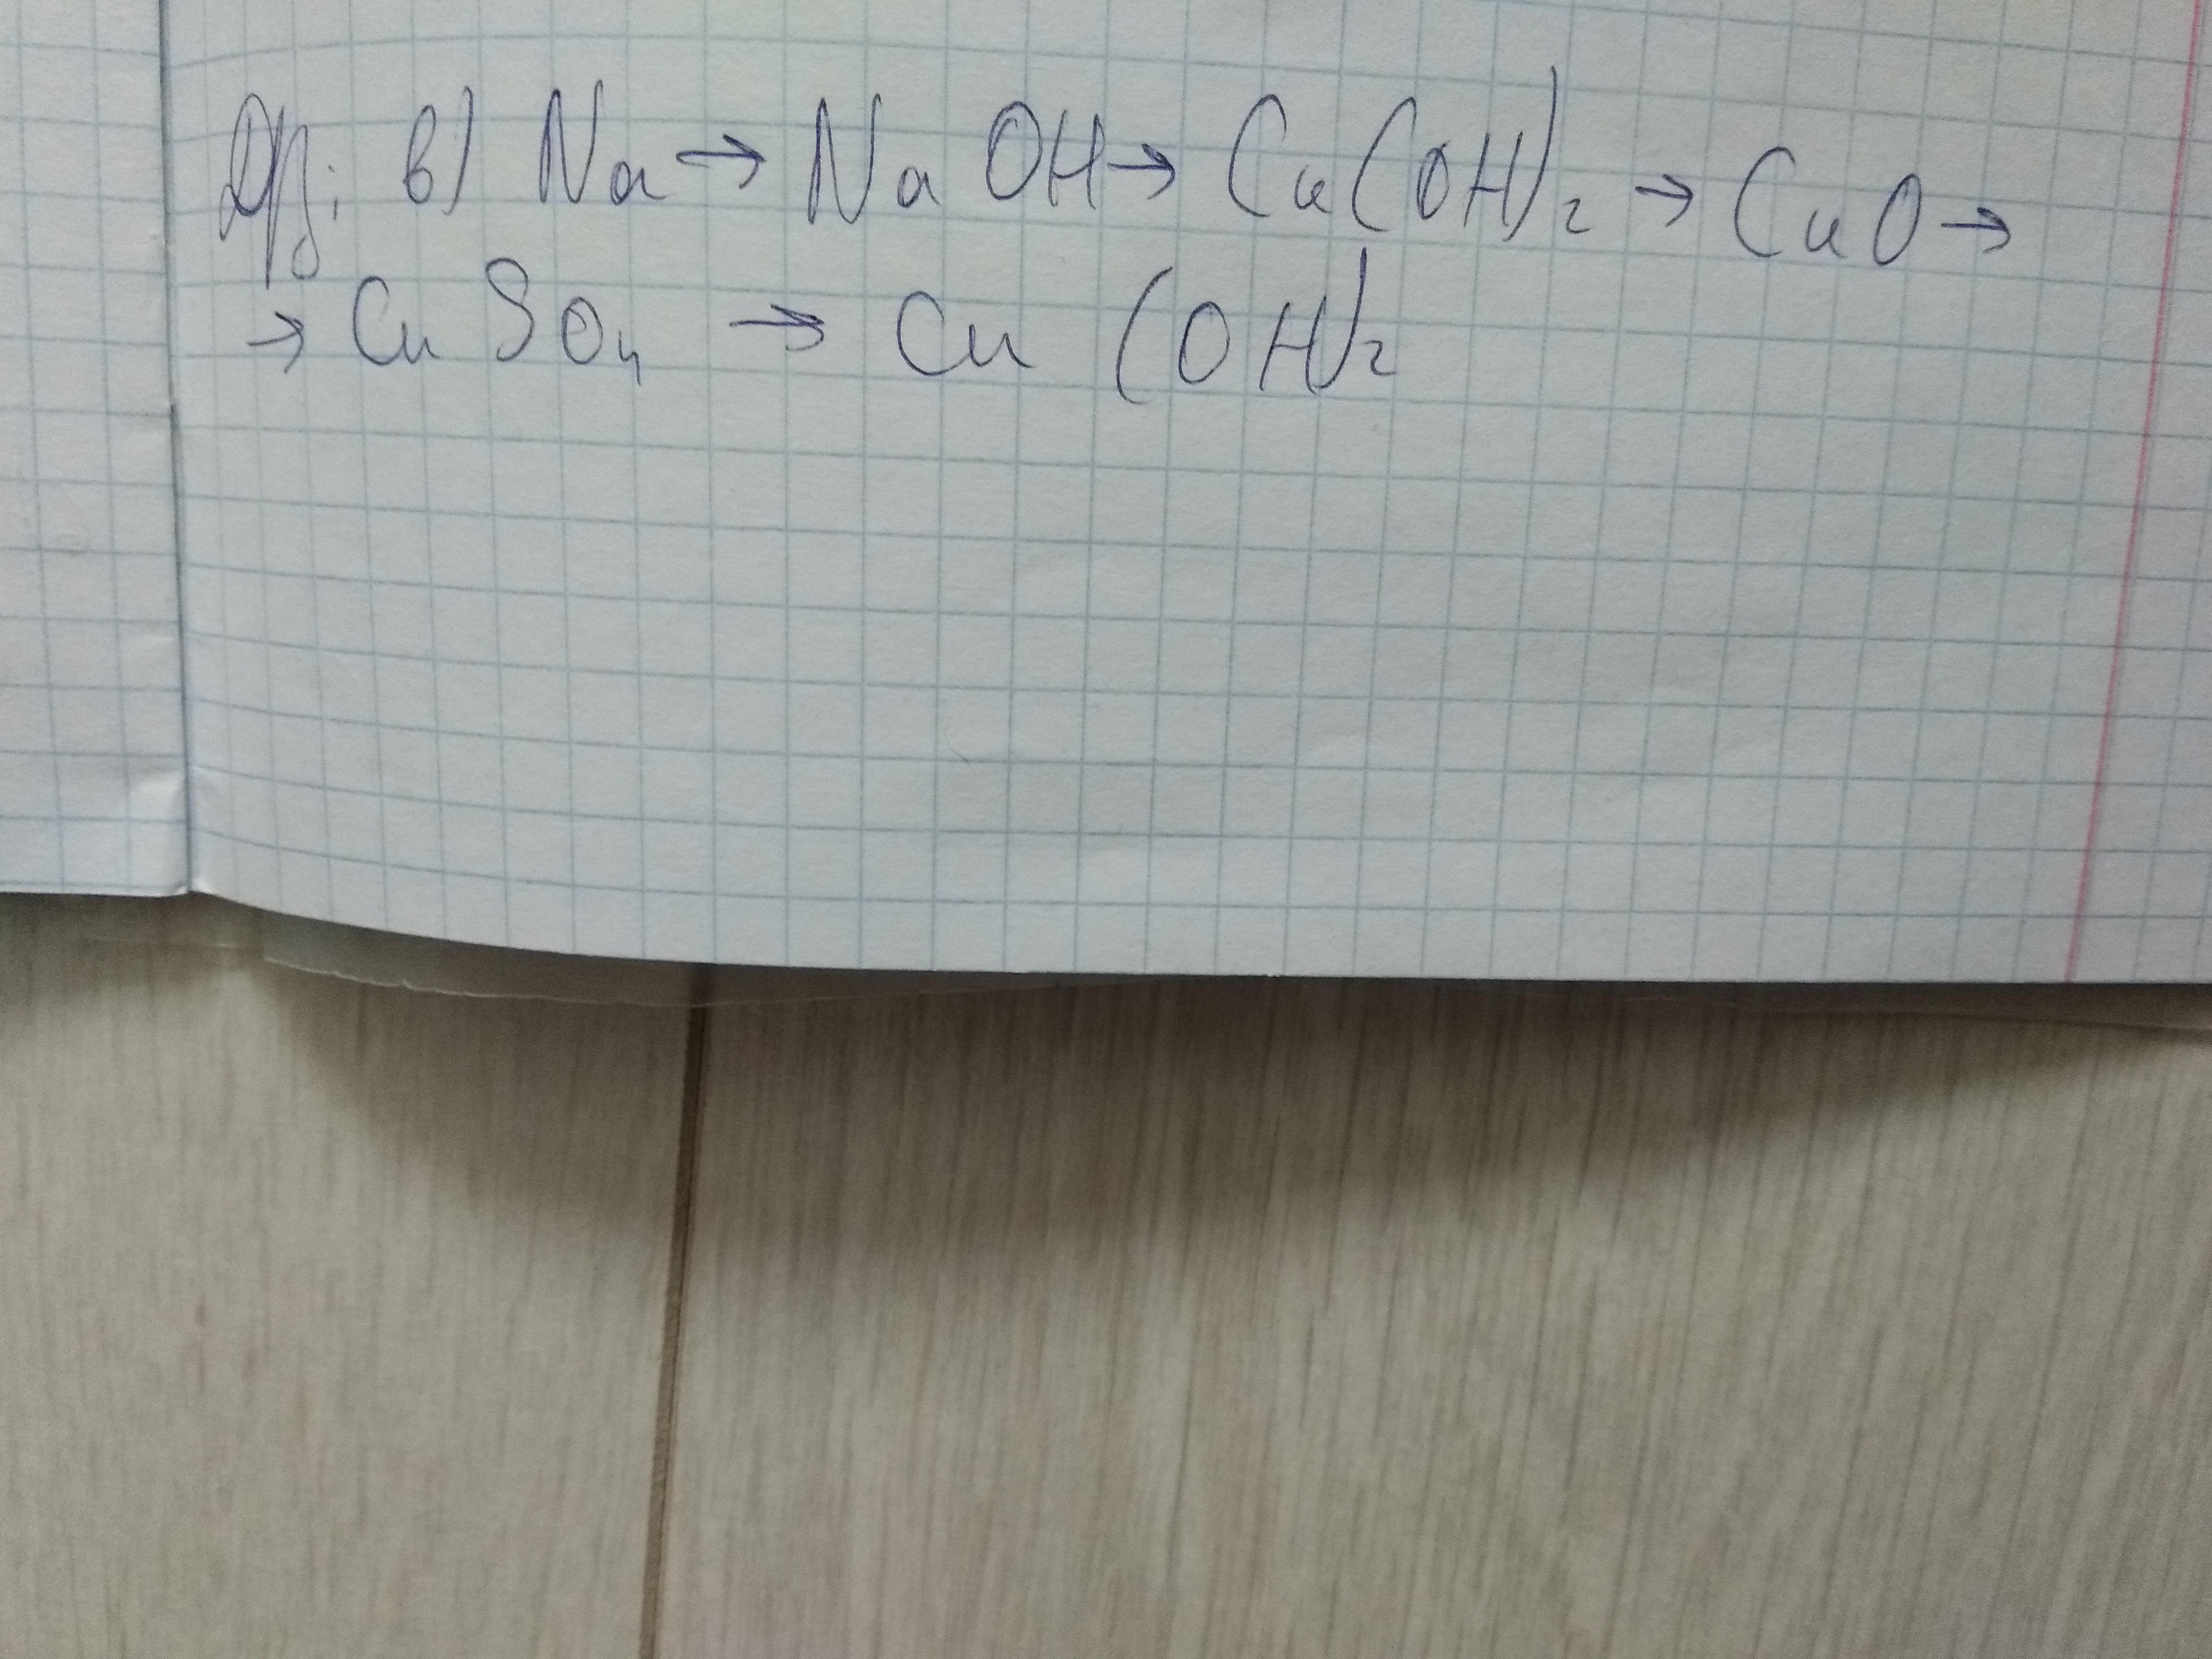 Д/з: в) Na → NaOH → Cu(OH)₂ → CuO →
→ CuSO₄ → Cu(OH)₂